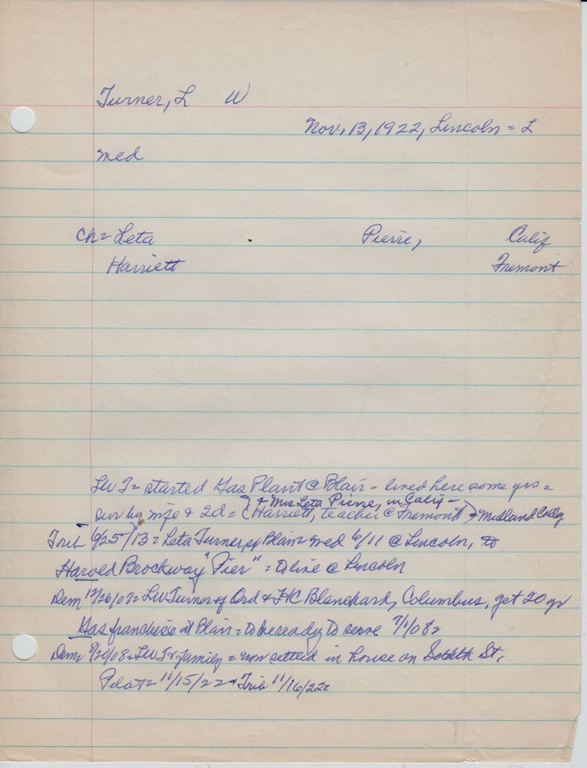 Turner, L W
Nov, 13, 1922, Lincoln = L
med
Ch = Leta Pierre, Calif
Harriett Fremont
LW T = started Gas Plant @ Blair - lived here some yrs =
sur by wife & 2d = { + Mrs Leta Pierre, in Calif -
Harriett, teacher @ Fremont } → Midland Colleg
Trib 6/25/13 = Leta Turner, of Blair = med 6/11 @ Lincoln, to
Harold Brockway "Pier" = to live @ Lincoln
Dem 12/26/07 = LW Turner of Ord & HC Blanchard, Columbus, get 20 yr
Gas franchise at Blair = to be ready to serve 7/1/08 =
Dem 9/20/08 = LW T & family = now settled in house on South St,
Pilot = 11/15/22 & Trib 11/16/22 =